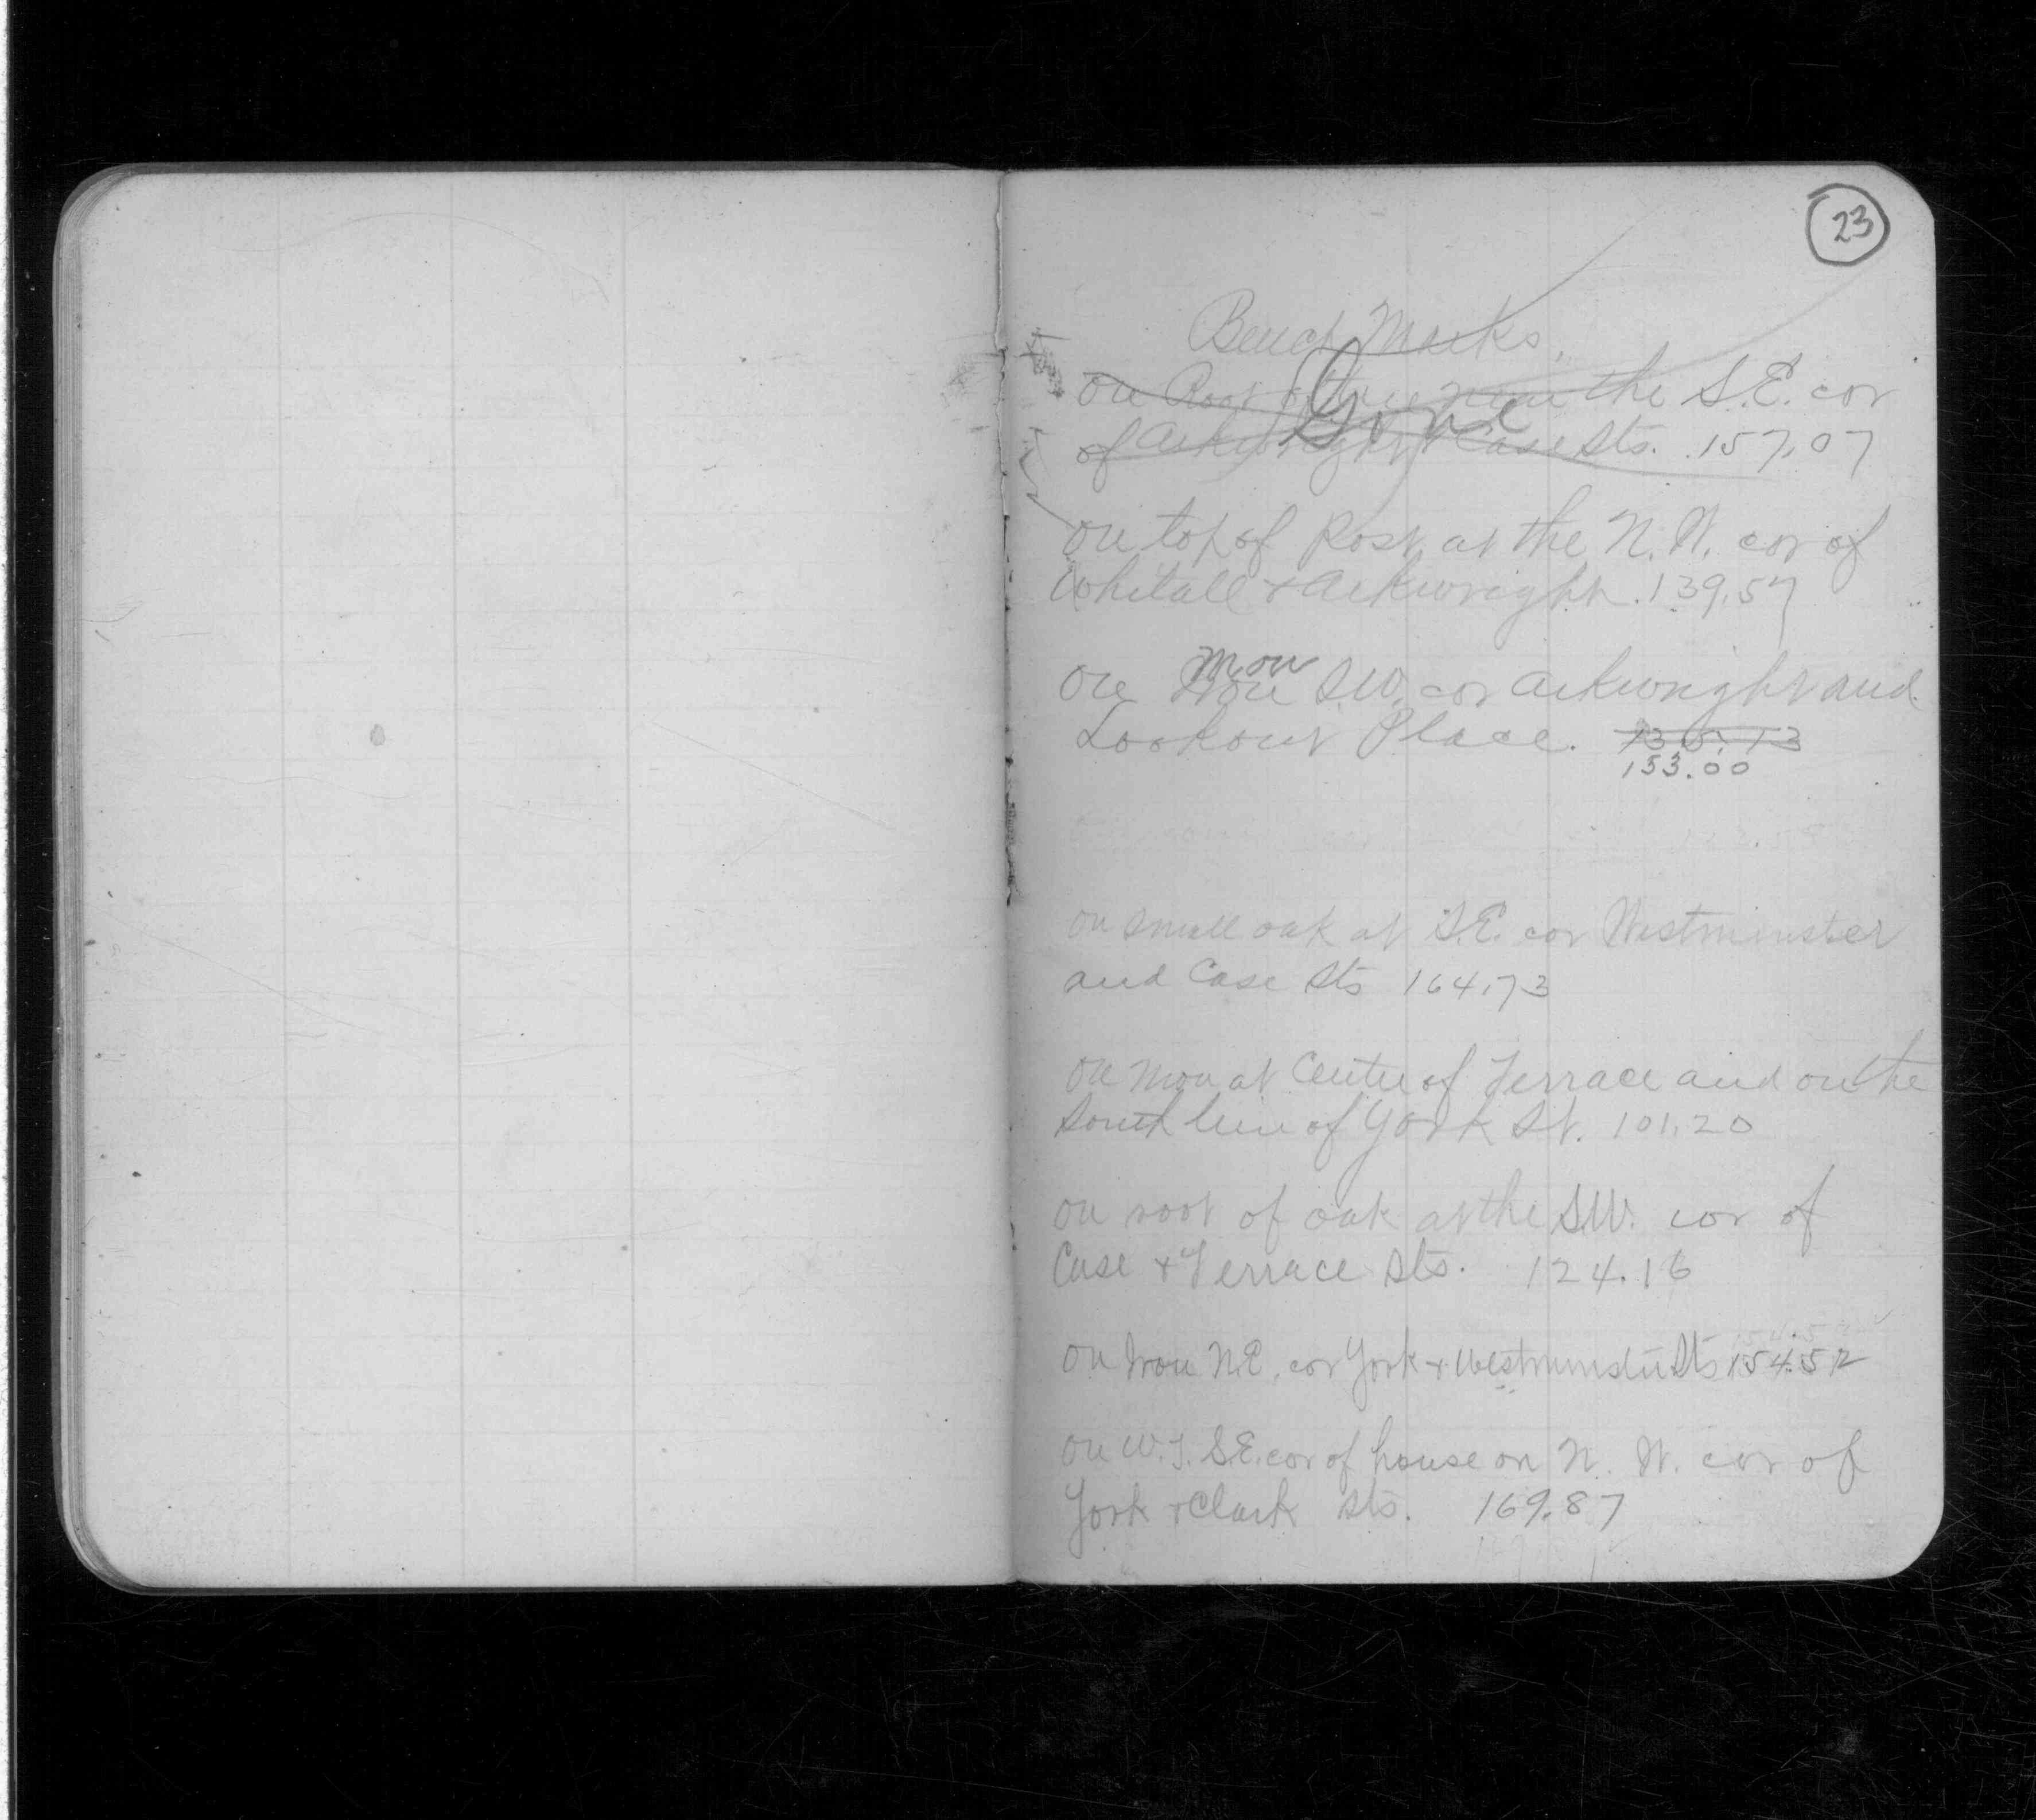 23
Bench Marks.
on Root of tree near the S.E. cor
Gone
of Arkwright & Case Sts. 157.07
on top of Post at the N.W. cor of
Whitall & Arkwright. 139.57
Mon
on Iron S.W. cor Arkwright and
Lookout Place. 136.13
153.00
on small oak at S.E. cor Westminster
and Case Sts 164.73
on mon at Center of Terrace and on the
South line of York St. 101.20
on root of oak at the S.W. cor of
Case & Terrace Sts. 124.16
on Iron N.E. cor York & Westminster Sts 154.52
on W.T. S.E. cor of house on N.W. cor of
York & Clark Sts. 169.87